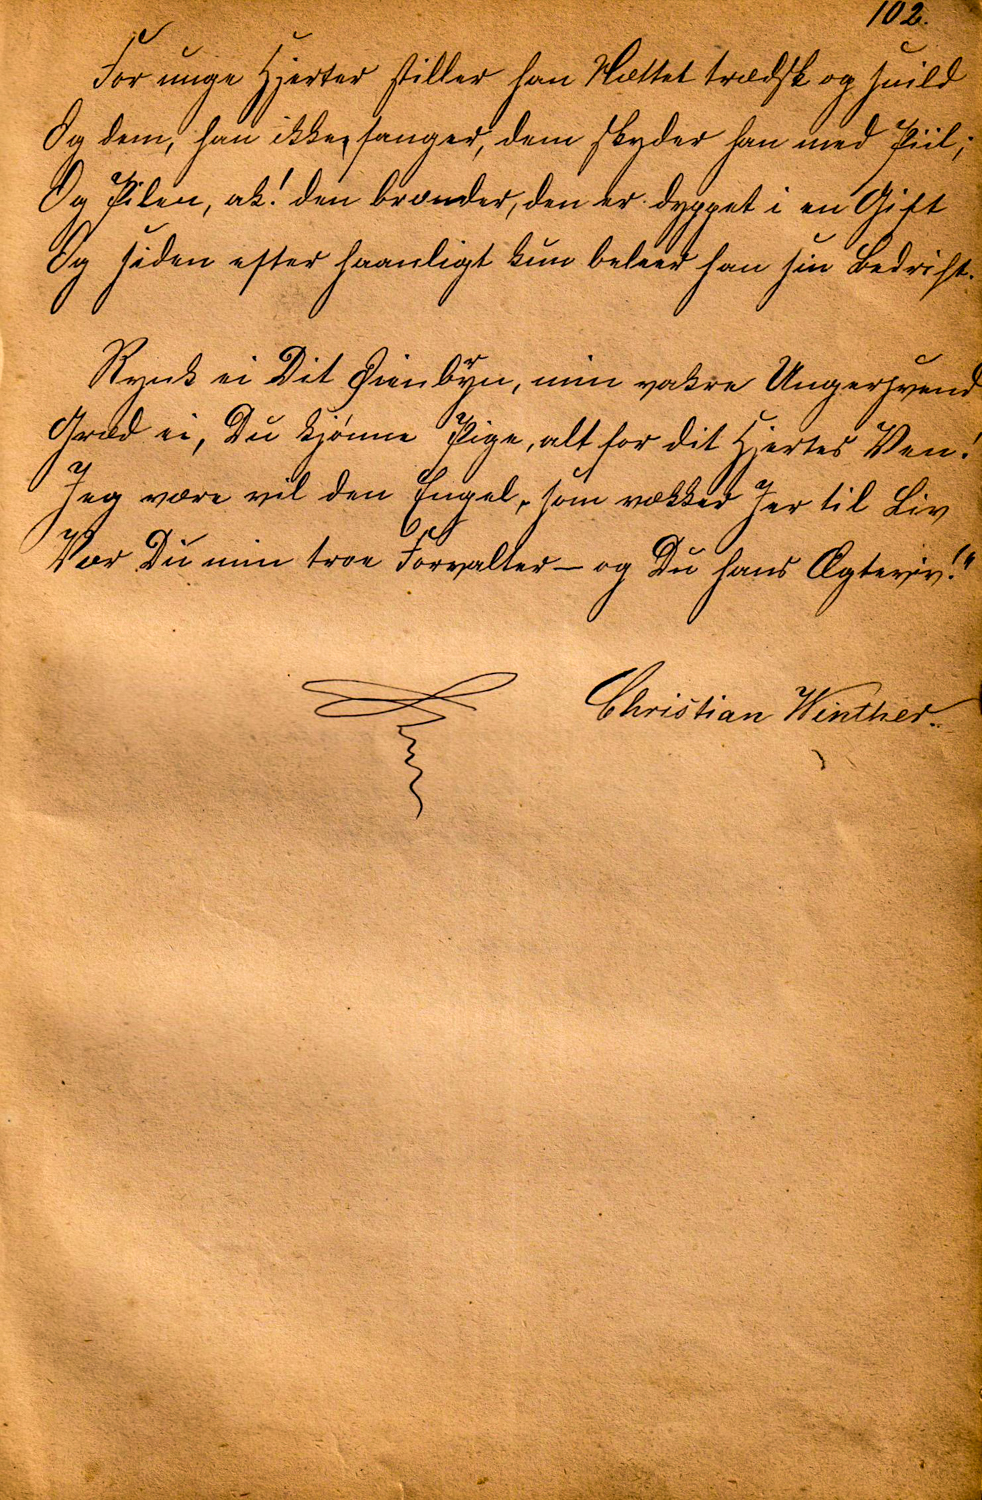 102.
For unge Hjerter stiller han Nættet trædsk og snild
Og dem, han ikke fanger, dem skyder han med Piil;
Og Pilen, ak! den brænder, den er dyppet i en Gift
Og siden efter haanligt kun beleer han sin Bedrift.
Rynk ei Dit Øienbryn, min vakre Ungersvend
Græd ei, Du kjønne Pige, alt for dit Hjertes Ven!
Jeg være vil den Engel, som vækker Jer til Liv
Vær Du min troe Forvalter — og Du hans Ægteviv!"
Christian Winther.